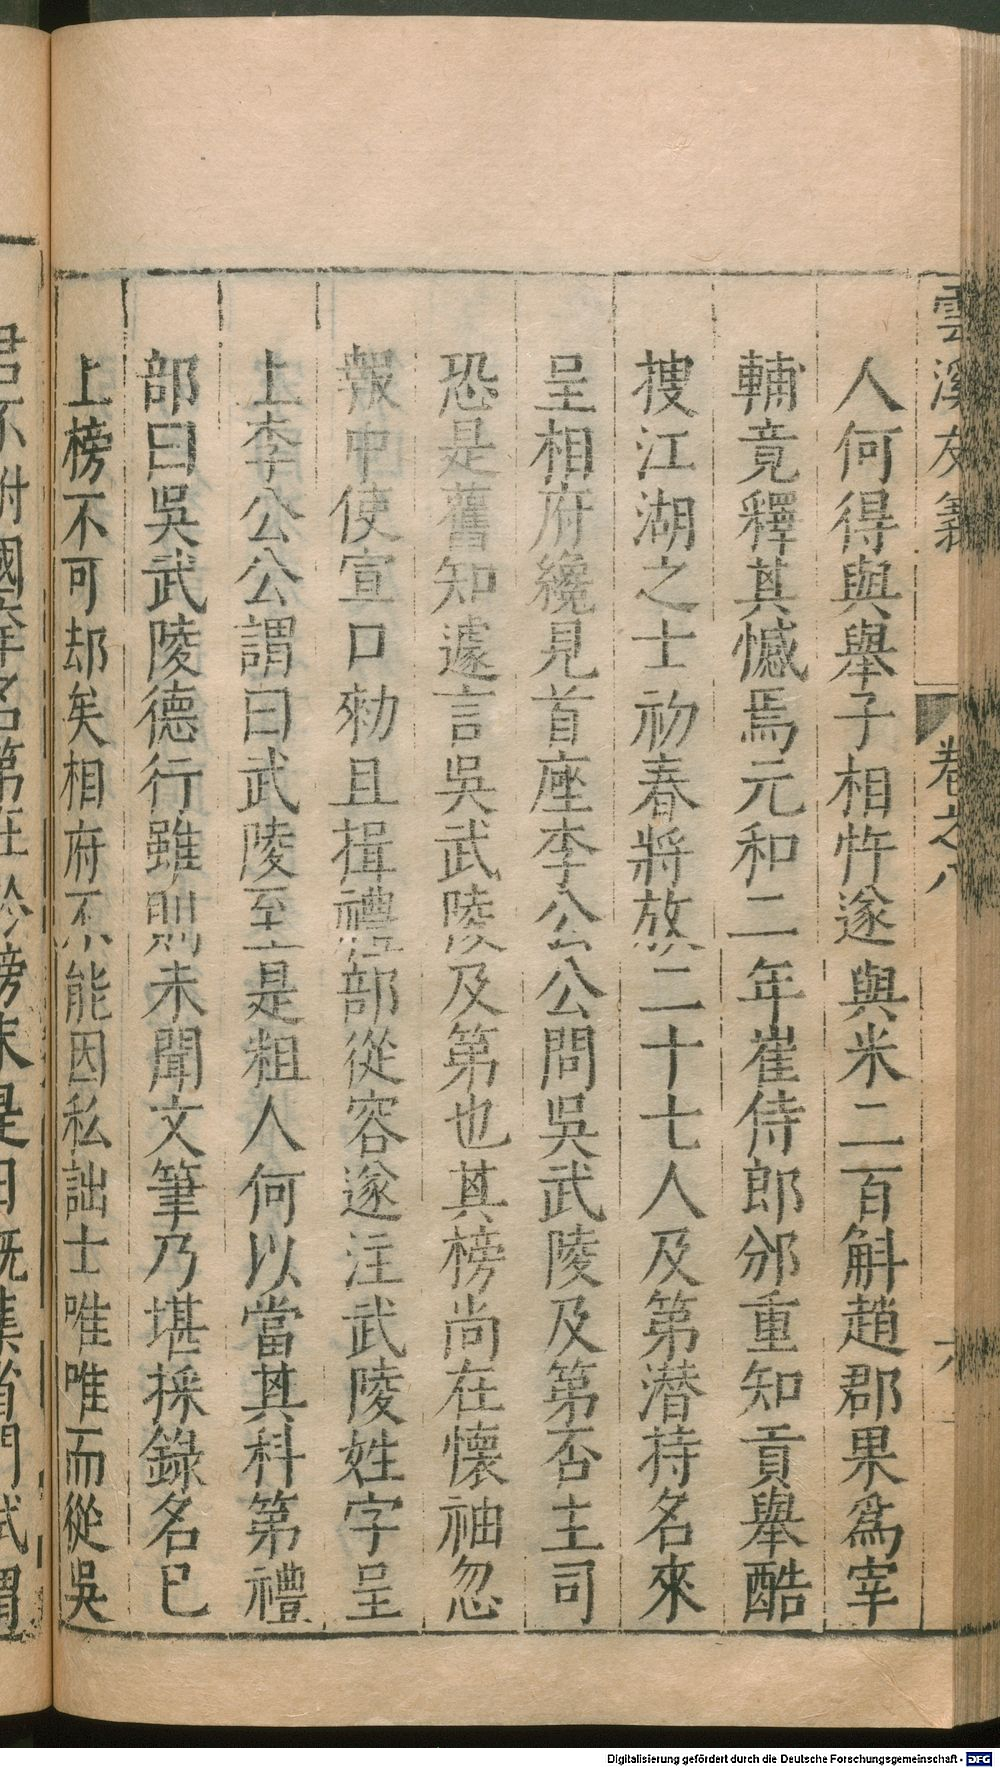 雲溪友議
卷之八
六
人何得與舉子相忤遂與米二百斛趙郡果爲宰
輔竟釋其憾焉元和二年崔侍郎邠重知貢舉酷
搜江湖之士初春將放二十七人及第潛持名來
呈相府纔見首座李公公問吳武陵及第否主司
恐是舊知遽言吳武陵及第也其榜尚在懷袖忽
報中使宣口勑且揖禮部從容遂注武陵姓字呈
上李公公謂曰武陵至是粗人何以當其科第禮
部曰吳武陵德行雖則未聞文筆乃堪採錄名已
上榜不可却矣相府不能因私詘士唯唯而從吳
君不附國子名第在於榜末是日旣集省門試謂
Digitalisierung gefördert durch die Deutsche Forschungsgemeinschaft - DFG